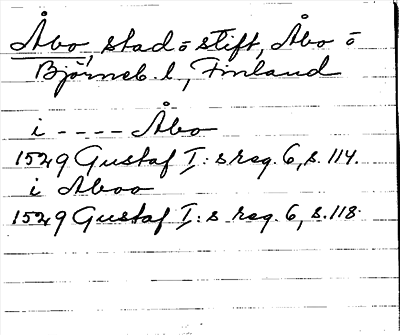 Åbo, stad o stift, Åbo o
Björneb. l, Finland
i - - - - Åbo
1529 Gustaf I: s reg. 6, s. 114.
i Aboo
1529 Gustaf I: s reg. 6, s. 118.